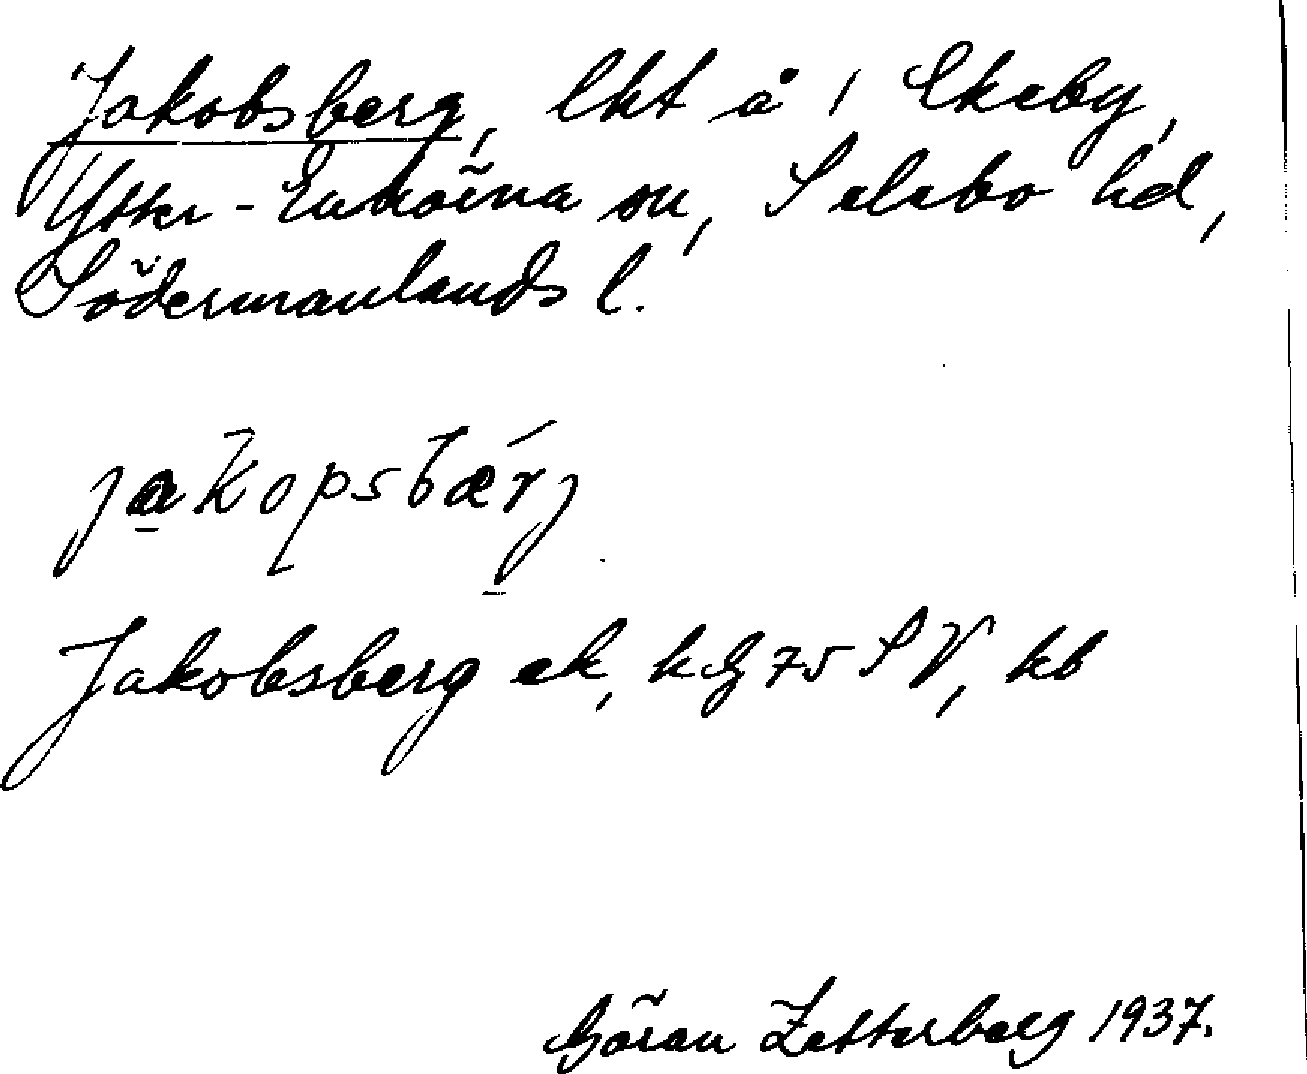 Jakobsberg, lht å 1 Ekeby,
Ytter-Enhörna sn, Selebo hd,
Södermanlands l.
jakopsbærj
Jakobsberg ek, kbl 75 SV, kb
Göran Zetterberg 1937.